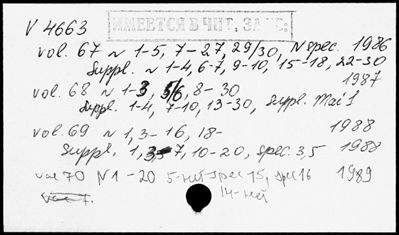 V 4663
ИМЕЕТСЯ В ЧИТ. ЗАЛЕ:
vol. 67 N 1-5, 7-27, 29/30, N spec. 1986
Suppl. N 1-4, 6-7, 9-10, 15-18, 22-30
1987
vol. 68 N 1-3, 5/6, 8-30
Suppl. 1-4, 7-10, 13-30, Suppl. Mai 1
vol. 69 N 1, 3-16, 18- 1988
Suppl. 1, 3-7, 10-20, Spec. 3,5 1988
vol 70 N 1-20 5-нет spec 15, spec 16 1989
14-нет